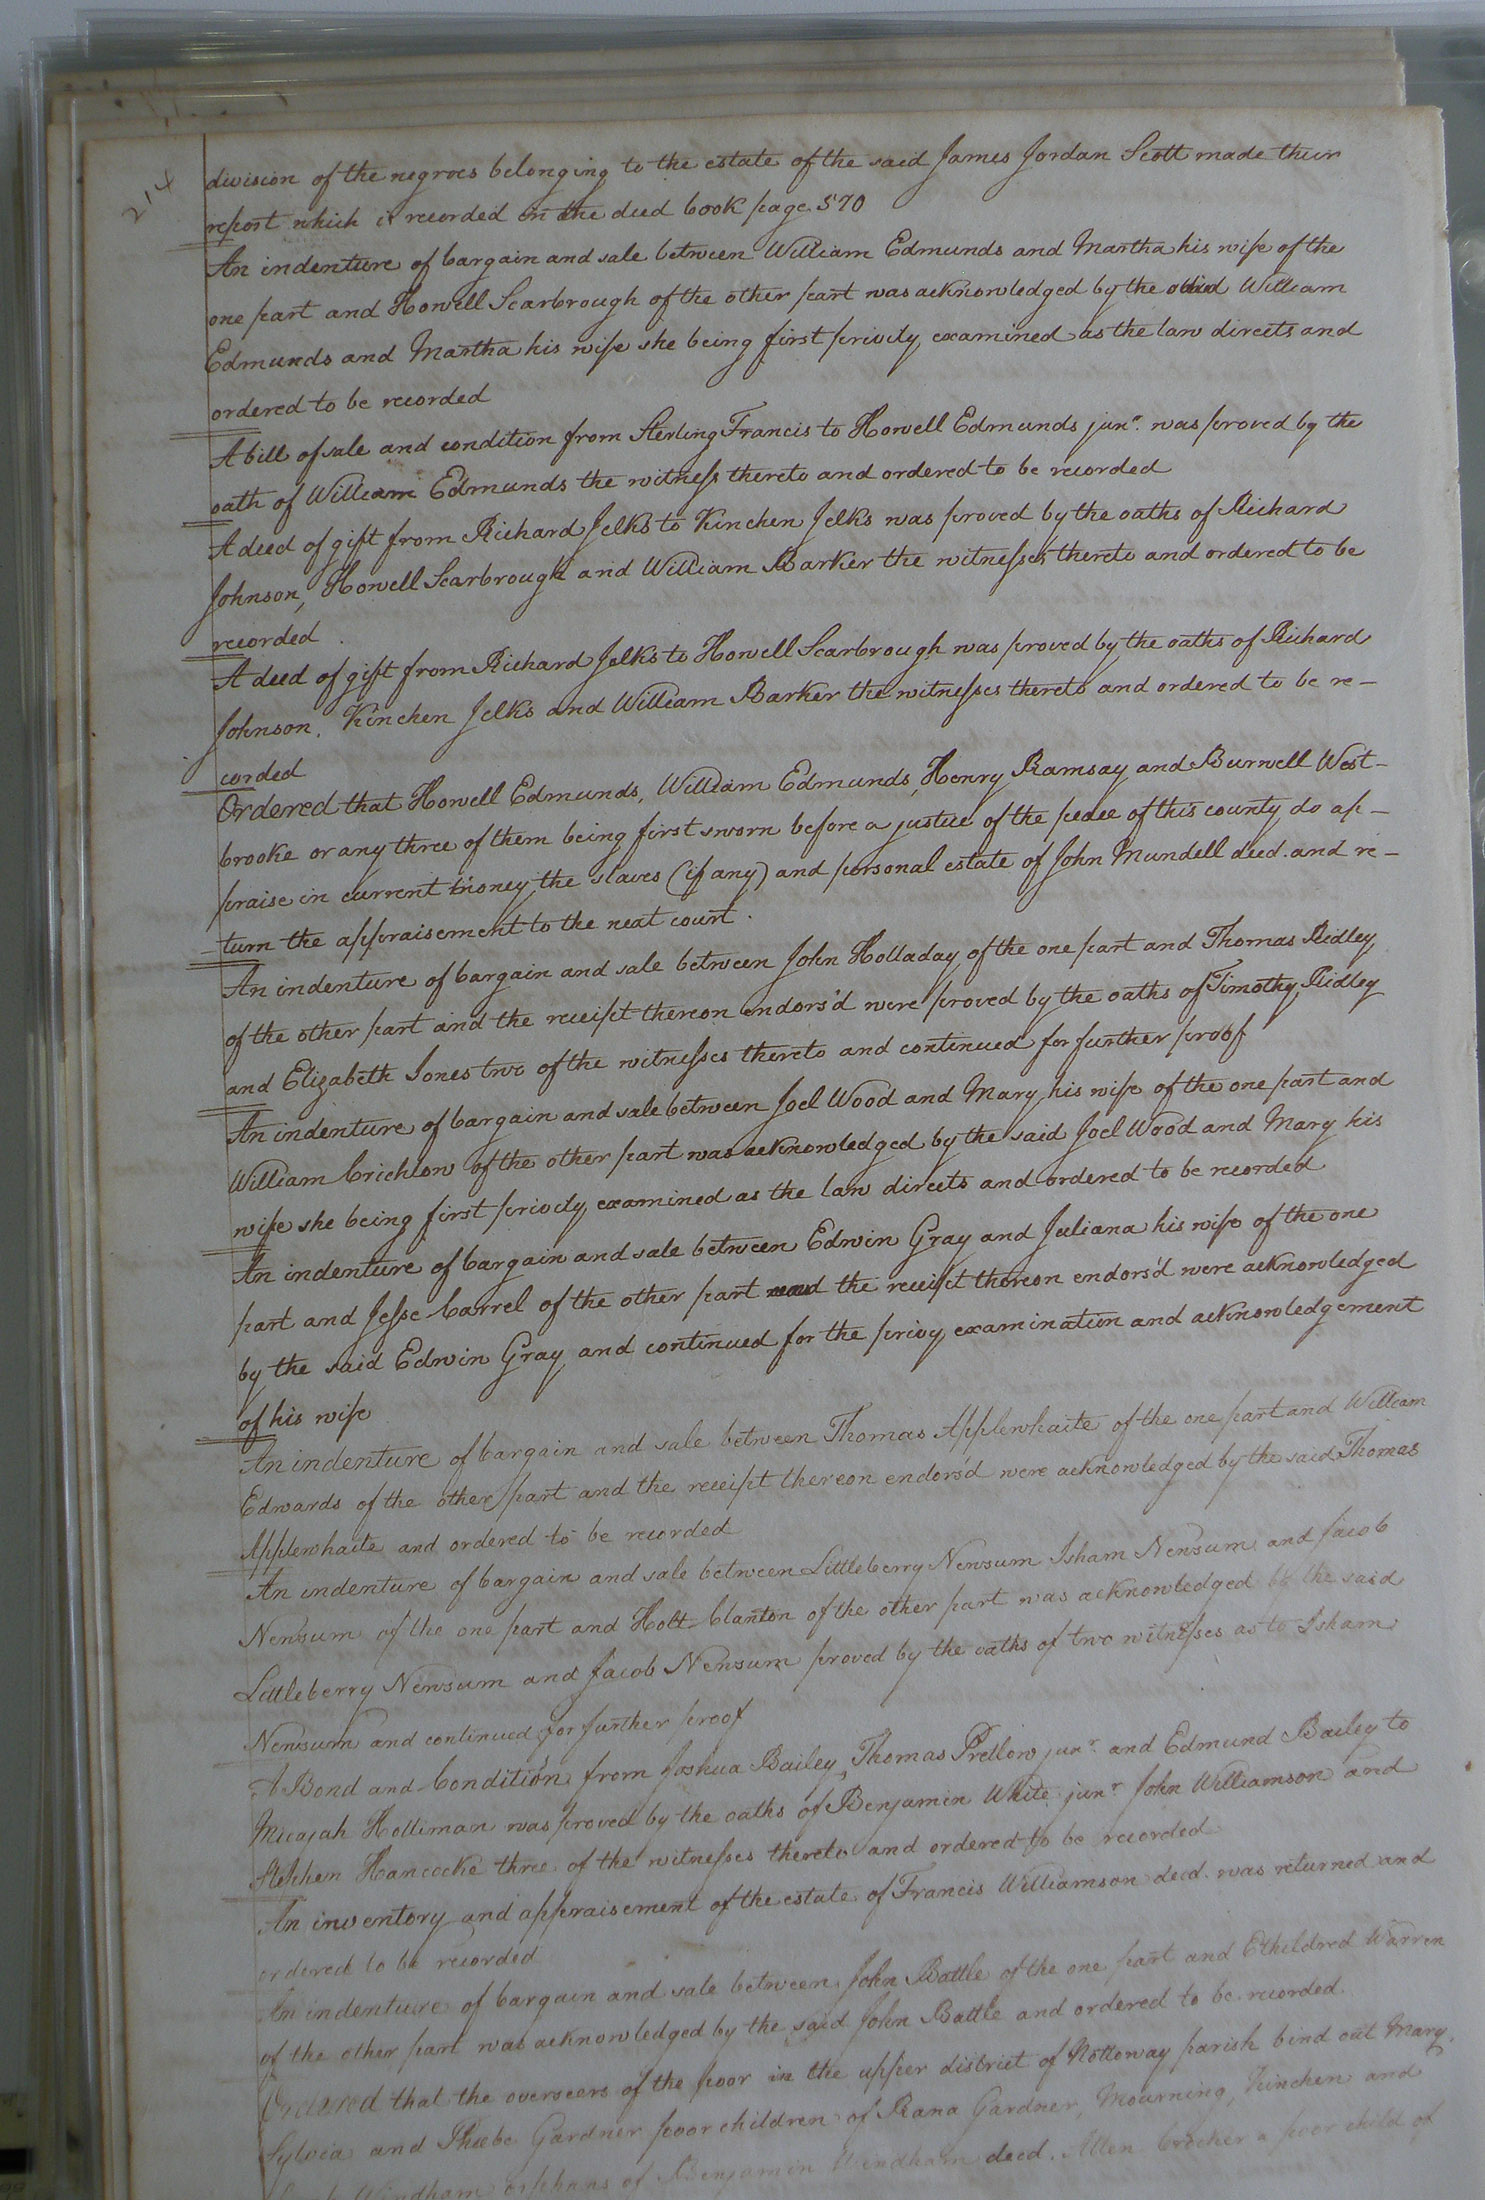 214
division of the negroes belonging to the estate of the said James Jordan Scott made their
report which is recorded in the deed book page 570
An indenture of bargain and sale between William Edmunds and Martha his wife of the
one part and Howell Scarbrough of the other part was acknowledged by the said William
Edmunds and Martha his wife she being first privily examined as the law directs and
ordered to be recorded
A bill of sale and condition from Sterling Francis to Howell Edmunds junr. was proved by the
oath of William Edmunds the witness thereto and ordered to be recorded
A deed of gift from Richard Jelks to Kinchen Jelks was proved by the oaths of Richard
Johnson, Howell Scarbrough and William Barker the witnesses thereto and ordered to be
recorded.
A deed of gift from Richard Jelks to Howell Scarbrough was proved by the oaths of Richard
Johnson, Kinchen Jelks and William Barker the witnesses thereto and ordered to be re-
corded
Ordered that Howell Edmunds, William Edmunds, Henry Ramsay and Burwell West-
brooke or any three of them being first sworn before a justice of the peace of this county do ap-
praise in current money the slaves (if any) and personal estate of John Mundell deed. and re-
turn the appraisement to the next court.
An indenture of bargain and sale between John Holladay of the one part and Thomas Ridley
of the other part and the receipt thereon endors'd were proved by the oaths of Timothy Ridley
and Elizabeth Jones two of the witnesses thereto and continued for further proof
An indenture of bargain and sale between Joel Wood and Mary his wife of the one part and
William Crichlow of the other part was acknowledged by the said Joel Wood and Mary his
wife she being first privily examined as the law directs and ordered to be recorded
An indenture of bargain and sale between Edwin Gray and Juliana his wife of the one
part and Jesse Carrel of the other part and the receipt thereon endors'd were acknowledged
by the said Edwin Gray and continued for the privy examination and acknowledgement
of his wife
An indenture of bargain and sale between Thomas Applewhaite of the one part and William
Edwards of the other part and the receipt thereon endorsd were acknowledged by the said Thomas
Applewhaite and ordered to be recorded
An indenture of bargain and sale between Littleberry Newsum Isham Newsum and Jacob
Newsum of the one part and Holt Clanton of the other part was acknowledged by the said
Littleberry Newsum and Jacob Newsum proved by the oaths of two witnesses as to Isham
Newsum and continued for further proof
A Bond and Condition from Joshua Bailey, Thomas Pretlow junr. and Edmund Bailey to
Micajah Holliman was proved by the oaths of Benjamin White junr. John Williamson and
Stephen Hancocke three of the witnesses thereto and ordered to be recorded
An inventory and appraisement of the estate of Francis Williamson decd. was returned and
ordered to be recorded
An indenture of bargain and sale between John Battle of the one part and Etheldred Warren
of the other part was acknowledged by the said John Battle and ordered to be recorded.
Ordered that the overseers of the poor in the upper district of Nottoway parish bind out Mary,
Sylvia and Phœbe Gardner poor children of Rana Gardner, Mourning, Kinchen and
Windham orphans of Benjamin Windham decd. Allen Crocker a poor child of